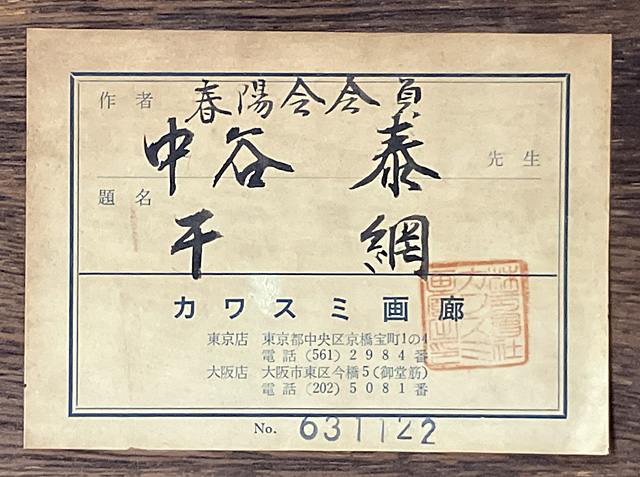 作者 春陽会会員
中谷 泰 先生
題名
干 網
カワスミ画廊
東京店 東京都中央区京橋宝町1の4
電話 (561) 2984番
大阪店 大阪市東区今橋5(御堂筋)
電話 (202) 5081番
No. 631122